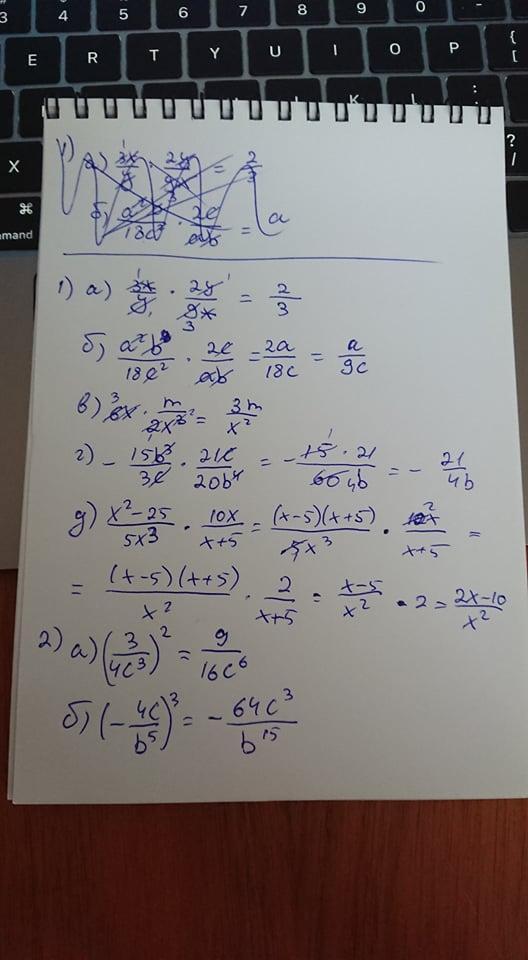 3 4 5 6 7 8 9 0
E R T Y U I O P { [
X
⌘
mmand
1) а) 3x/y · 2y/9x = 2/3
б) 18c² · 2c/ab = a
1) а) 3x/y · 2y/9x = 2/3
б) a²b/18c² · 2c/ab = 2a/18c = a/9c
в) 6x · m/2x³ = 3m/x²
г) - 15b³/3c · 21c/20b⁴ = - 15 · 21/60b = - 21/4b
д) x²-25/5x³ · 10x/x+5 = (x-5)(x+5)/5x³ · 10x/x+5 =
= (x-5)(x+5)/x² · 2/x+5 = x-5/x² · 2 = 2x-10/x²
2) а) (3/4c³)² = 9/16c⁶
б) (- 4c/b⁵)³ = - 64c³/b¹⁵